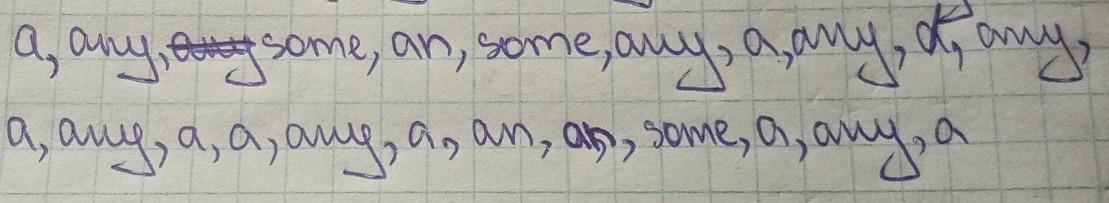 a, any, some, an, some, any, a, any, a, any,
a, any, a, a, any, a, an, an, some, a, any, a